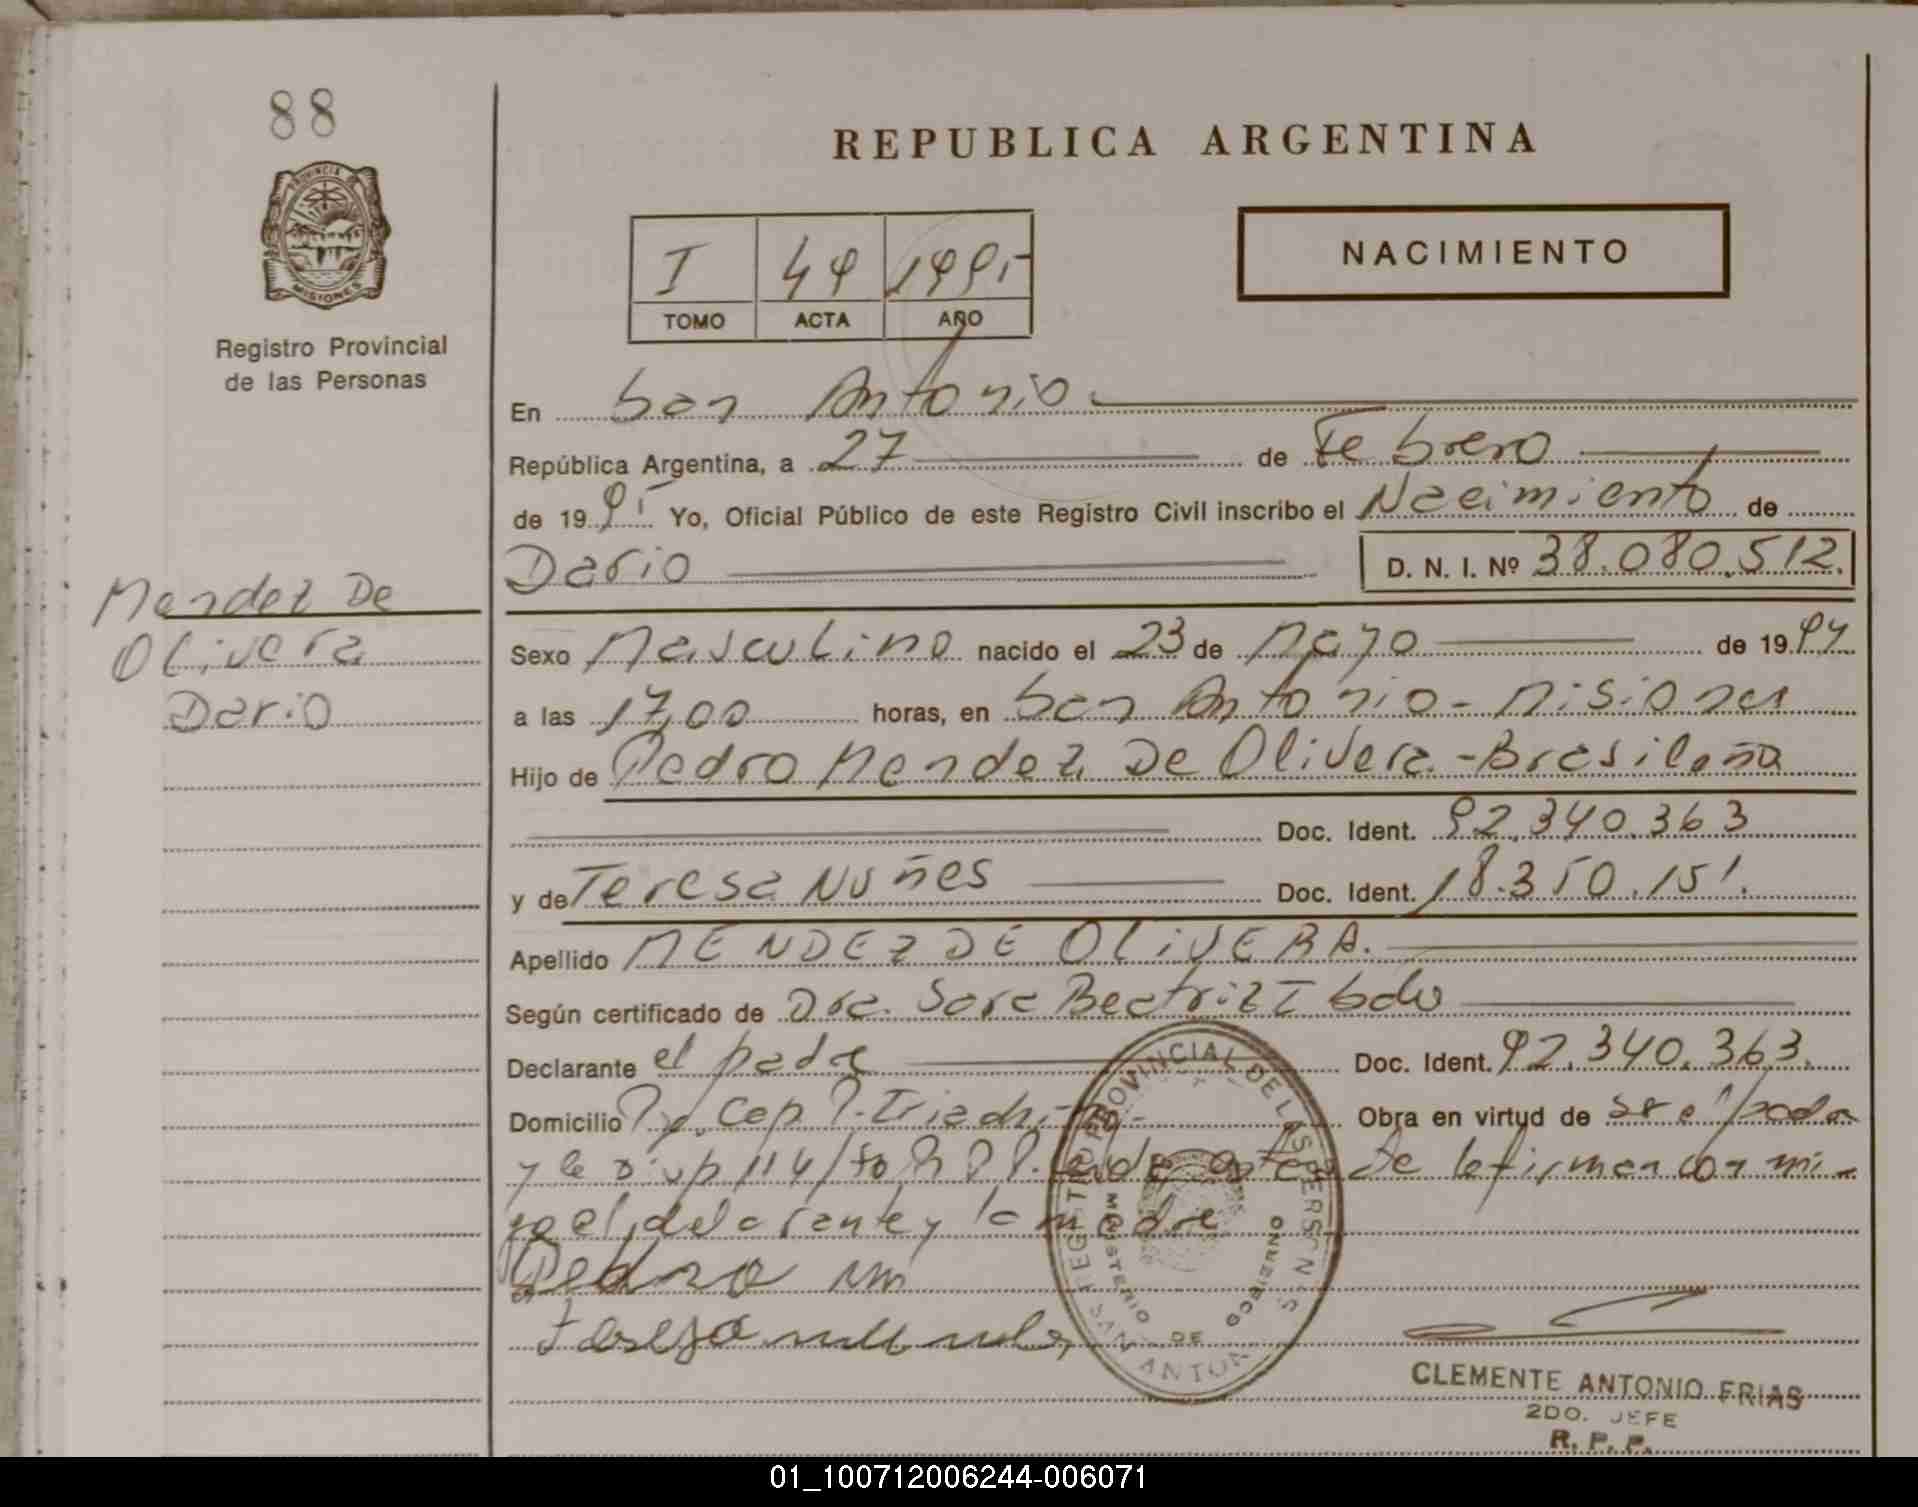 88
REPUBLICA ARGENTINA
PROVINCIA DE
MISIONES
Registro Provincial
de las Personas
NACIMIENTO
I 49 1995
TOMO ACTA AÑO
En San Antonio
República Argentina, a 27 de Febrero
de 1995 Yo, Oficial Público de este Registro Civil inscribo el Nacimiento de
Dario D. N. I. Nº 38.080.512.
Mendez De
Olivera
Dario
Sexo Masculino nacido el 23 de Mayo de 1994
a las 17,00 horas, en San Antonio - Misiones
Hijo de Pedro Mendez De Olivera - Brasileña
Doc. Ident. 92.340.363
y de Teresa Nuñes Doc. Ident. 18.350.151.
Apellido MENDEZ DE OLIVERA.
Según certificado de Dra. Sara Beatriz
Declarante el padre Doc. Ident. 92.340.363.
Domicilio Obra en virtud de ser el padre
y la Disp 114/80 R P P. de firman con mi-
go el declarante y la madre
Pedro
Teresa
REGISTRO PROVINCIAL DE LAS PERSONAS
MINISTERIO DE GOBIERNO
SAN ANTONIO
CLEMENTE ANTONIO FRIAS
2DO. JEFE
R. P. P.
01_100712006244-006071